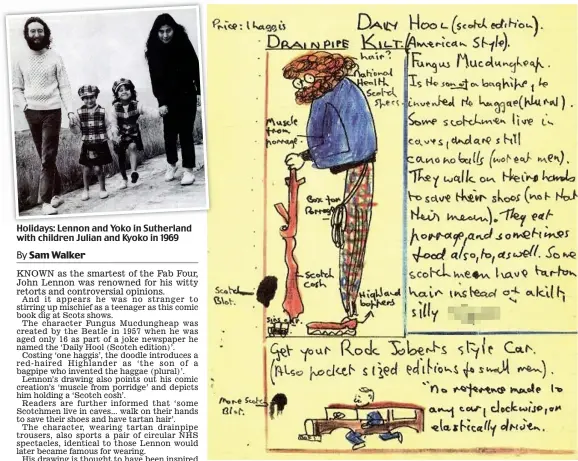 Holidays: Lennon and Yoko in Sutherland
with children Julian and Kyoko in 1969
By Sam Walker
KNOWN as the smartest of the Fab Four,
John Lennon was renowned for his witty
retorts and controversial opinions.
And it appears he was no stranger to
stirring up mischief as a teenager as this comic
book dig at Scots shows.
The character Fungus Mucdungheap was
created by the Beatle in 1957 when he was
aged only 16 as part of a joke newspaper he
named the 'Daily Hool (Scotch edition)'.
Costing 'one haggis', the doodle introduces a
red-haired Highlander as 'the son of a
bagpipe who invented the haggae (plural)'.
Lennon's drawing also points out his comic
creation's 'muscle from porridge' and depicts
him holding a 'Scotch cosh'.
Readers are further informed that 'some
Scotchmen live in caves... walk on their hands
to save their shoes and have tartan hair'.
The character, wearing tartan drainpipe
trousers, also sports a pair of circular NHS
spectacles, identical to those Lennon would
later became famous for wearing.
His drawing is thought to have been inspired
Price: 1 haggis
DAILY HOOL (scotch edition).
DRAINPIPE KILT. (American Style).
hair?
National
Health
Scotch
specs.
Muscle
from
porrage.
Box for
Porrage
Scotch
Cosh
Scotch
Blot.
Highland
boppers
Fungus Mucdungheap.
Is the son of a baghipe, to
invented the haggae (plural).
Some scotchmen live in
caves, and are still
canonoballs (wot eat men).
They walk on theire hands
to save their shoes (not that
their mean). They eat
porrage, and sometimes
food also, to, as well. Some
scotchmeon have tartan
hair instead of a kilty
silly
Get your Rock Joberts style Car.
(Also pocket sized editions for small men).
More Scotch
Blot.
"no reference made to
any car, clockwise, or
elastically driven.